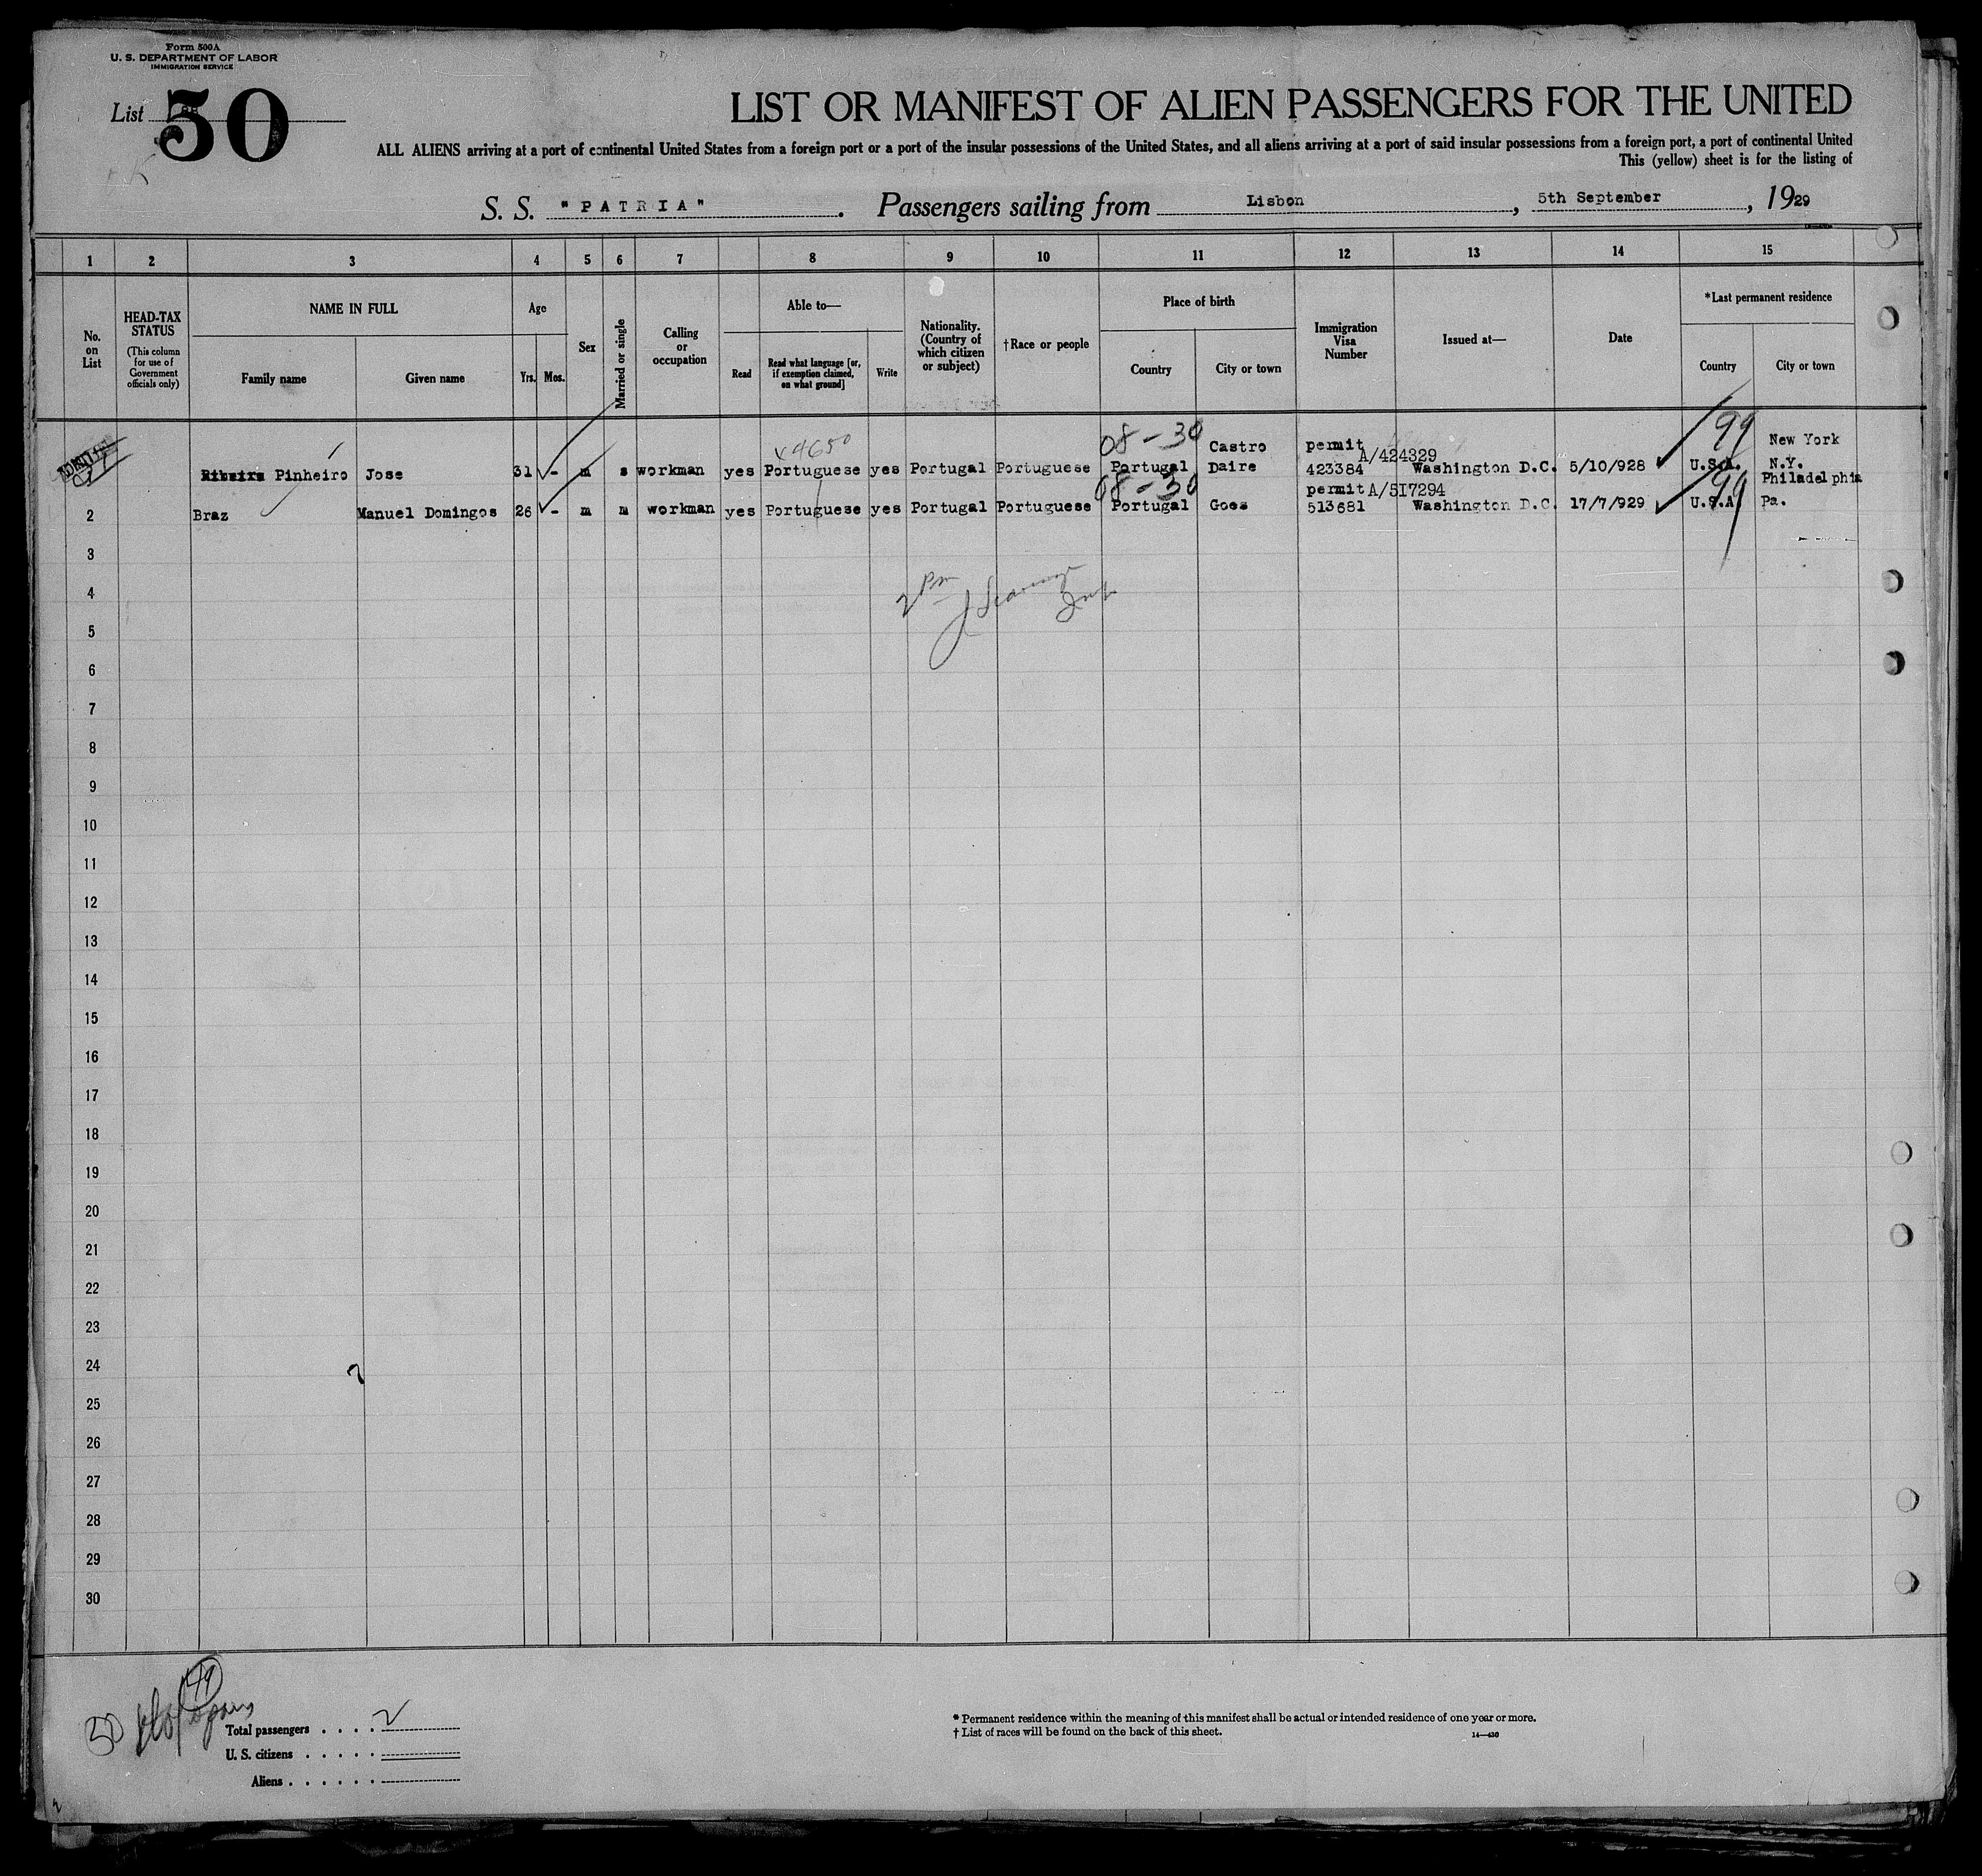 Form 500A
U. S. DEPARTMENT OF LABOR
IMMIGRATION SERVICE
List 50
LIST OR MANIFEST OF ALIEN PASSENGERS FOR THE UNITED
ALL ALIENS arriving at a port of continental United States from a foreign port or a port of the insular possessions of the United States, and all aliens arriving at a port of said insular possessions from a foreign port, a port of continental United
This (yellow) sheet is for the listing of
S. S. "PATRIA". Passengers sailing from Lisbon, 5th September, 1929
1 2 3 4 5 6 7 8 9 10 11 12 13 14 15
No. on List
HEAD-TAX STATUS
(This column for use of Government officials only)
NAME IN FULL
Family name
Given name
Age
Yrs. Mos.
Sex
Married or single
Calling or occupation
Able to—
Read
Read what language [or, if exemption claimed, on what ground]
Write
Nationality. (Country of which citizen or subject)
†Race or people
Place of birth
Country
City or town
Immigration Visa Number
Issued at—
Date
*Last permanent residence
Country
City or town
x4650
08-30
Castro
permit
A/424329
99
New York
Pinheiro Jose 31 - m s workman yes Portuguese yes Portugal Portuguese Portugal Daire 423384 Washington D.C. 5/10/928 U.S.A. N.Y.
08-30
permit A/517294
99
Philadelphia
2 Braz Manuel Domingos 26 - m m workman yes Portuguese yes Portugal Portuguese Portugal Goes 513681 Washington D.C. 17/7/929 U.S.A. Pa.
3
4
5
6
7
8
9
10
11
12
13
14
15
16
17
18
19
20
21
22
23
24
25
26
27
28
29
30
49
50
Total passengers . . . . 2
U. S. citizens . . . . .
Aliens . . . . . .
* Permanent residence within the meaning of this manifest shall be actual or intended residence of one year or more.
† List of races will be found on the back of this sheet.
14—430